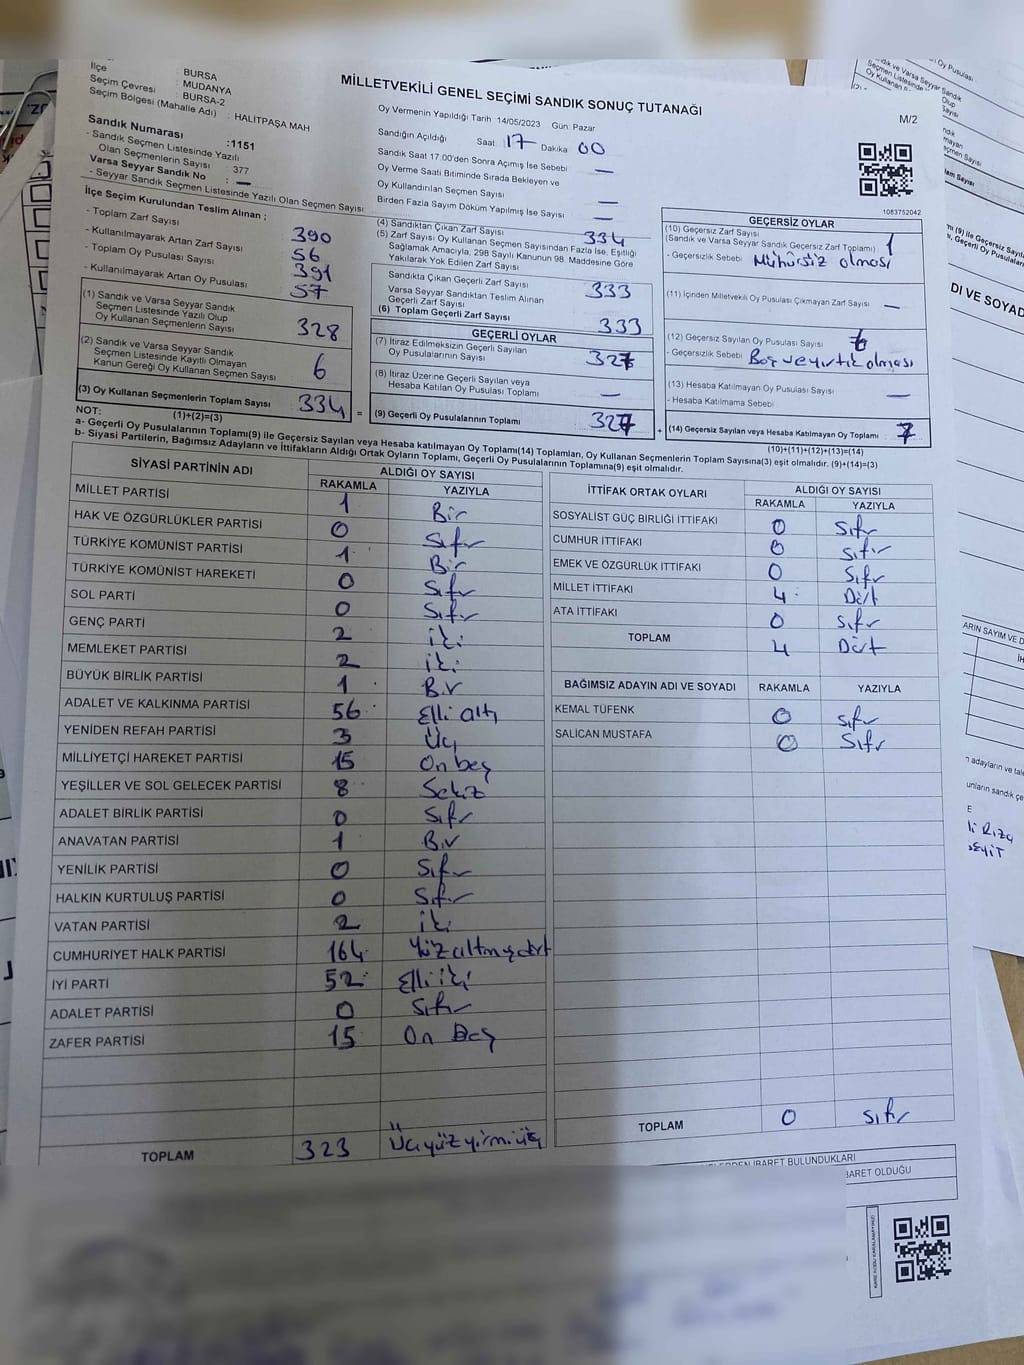 İlçe : BURSA
Seçim Çevresi : MUDANYA
Seçim Bölgesi (Mahalle Adı) : BURSA-2
HALİTPAŞA MAH
MİLLETVEKİLİ GENEL SEÇİMİ SANDIK SONUÇ TUTANAĞI
M/2
Oy Vermenin Yapıldığı Tarih 14/05/2023 Gün: Pazar
Sandığın Açıldığı Saat 17 Dakika 00
Sandık Saat 17.00'den Sonra Açımış İse Sebebi —
Oy Verme Saati Bitiminde Sırada Bekleyen ve
Oy Kullandırılan Seçmen Sayısı —
Birden Fazla Sayım Döküm Yapılmış İse Sayısı —
1083752042
Sandık Numarası :1151
- Sandık Seçmen Listesinde Yazılı
Olan Seçmenlerin Sayısı 377
Varsa Seyyar Sandık No : —
- Seyyar Sandık Seçmen Listesinde Yazılı Olan Seçmen Sayısı:
İlçe Seçim Kurulundan Teslim Alınan ;
- Toplam Zarf Sayısı : 390
- Kullanılmayarak Artan Zarf Sayısı : 56
- Toplam Oy Pusulası Sayısı : 391
- Kullanılmayarak Artan Oy Pusulası : 57
(1) Sandık ve Varsa Seyyar Sandık
Seçmen Listesinde Yazılı Olup
Oy Kullanan Seçmenlerin Sayısı 328
(2) Sandık ve Varsa Seyyar Sandık
Seçmen Listesinde Kayıtlı Olmayan
Kanun Gereği Oy Kullanan Seçmen Sayısı 6
(3) Oy Kullanan Seçmenlerin Toplam Sayısı 334
(1)+(2)=(3)
(4) Sandıktan Çıkan Zarf Sayısı 334
(5) Zarf Sayısı Oy Kullanan Seçmen Sayısından Fazla İse, Eşitliği
Sağlamak Amacıyla, 298 Sayılı Kanunun 98. Maddesine Göre
Yakılarak Yok Edilen Zarf Sayısı
Sandıkta Çıkan Geçerli Zarf Sayısı 333
Varsa Seyyar Sandıktan Teslim Alınan
Geçerli Zarf Sayısı
(6) Toplam Geçerli Zarf Sayısı 333
GEÇERLİ OYLAR
(7) İtiraz Edilmeksizin Geçerli Sayılan
Oy Pusulalarının Sayısı 327
(8) İtiraz Üzerine Geçerli Sayılan veya
Hesaba Katılan Oy Pusulası Toplamı —
= (9) Geçerli Oy Pusulalarının Toplamı : 327 +
GEÇERSİZ OYLAR
(10) Geçersiz Zarf Sayısı
(Sandık ve Varsa Seyyar Sandık Geçersiz Zarf Toplamı) 1
- Geçersizlik Sebebi Mühürsüz olması
(11) İçinden Milletvekili Oy Pusulası Çıkmayan Zarf Sayısı —
(12) Geçersiz Sayılan Oy Pusulası Sayısı 6
- Geçersizlik Sebebi Boş ve yırtık olması
(13) Hesaba Katılmayan Oy Pusulası Sayısı —
- Hesaba Katılmama Sebebi
(14) Geçersiz Sayılan veya Hesaba Katılmayan Oy Toplamı : 7
(10)+(11)+(12)+(13)=(14)
NOT:
a- Geçerli Oy Pusulalarının Toplamı(9) ile Geçersiz Sayılan veya Hesaba katılmayan Oy Toplamı(14) Toplamları, Oy Kullanan Seçmenlerin Toplam Sayısına(3) eşit olmalıdır. (9)+(14)=(3)
b- Siyasi Partilerin, Bağımsız Adayların ve İttifakların Aldığı Ortak Oyların Toplamı, Geçerli Oy Pusulalarının Toplamına(9) eşit olmalıdır.
SİYASİ PARTİNİN ADI ALDIĞI OY SAYISI
RAKAMLA YAZIYLA
MİLLET PARTİSİ 1 Bir
HAK VE ÖZGÜRLÜKLER PARTİSİ 0 Sıfır
TÜRKİYE KOMÜNİST PARTİSİ 1 Bir
TÜRKİYE KOMÜNİST HAREKETİ 0 Sıfır
SOL PARTİ 0 Sıfır
GENÇ PARTİ 2 iki
MEMLEKET PARTİSİ 2 iki
BÜYÜK BİRLİK PARTİSİ 1 Bir
ADALET VE KALKINMA PARTİSİ 56 Elli altı
YENİDEN REFAH PARTİSİ 3 Üç
MİLLİYETÇİ HAREKET PARTİSİ 15 On beş
YEŞİLLER VE SOL GELECEK PARTİSİ 8 Sekiz
ADALET BİRLİK PARTİSİ 0 Sıfır
ANAVATAN PARTİSİ 1 Bir
YENİLİK PARTİSİ 0 Sıfır
HALKIN KURTULUŞ PARTİSİ 0 Sıfır
VATAN PARTİSİ 2 iki
CUMHURİYET HALK PARTİSİ 164 Yüz altmış dört
İYİ PARTİ 52 Elli iki
ADALET PARTİSİ 0 Sıfır
ZAFER PARTİSİ 15 On Beş
TOPLAM 323 Üçyüz yirmi üç
İTTİFAK ORTAK OYLARI ALDIĞI OY SAYISI
RAKAMLA YAZIYLA
SOSYALİST GÜÇ BİRLİĞİ İTTİFAKI 0 Sıfır
CUMHUR İTTİFAKI 0 Sıfır
EMEK VE ÖZGÜRLÜK İTTİFAKI 0 Sıfır
MİLLET İTTİFAKI 4 Dört
ATA İTTİFAKI 0 Sıfır
TOPLAM 4 Dört
BAĞIMSIZ ADAYIN ADI VE SOYADI RAKAMLA YAZIYLA
KEMAL TÜFENK 0 Sıfır
SALİCAN MUSTAFA 0 Sıfır
TOPLAM 0 Sıfır
İBARET BULUNDUKLARI
BARET OLDUĞU